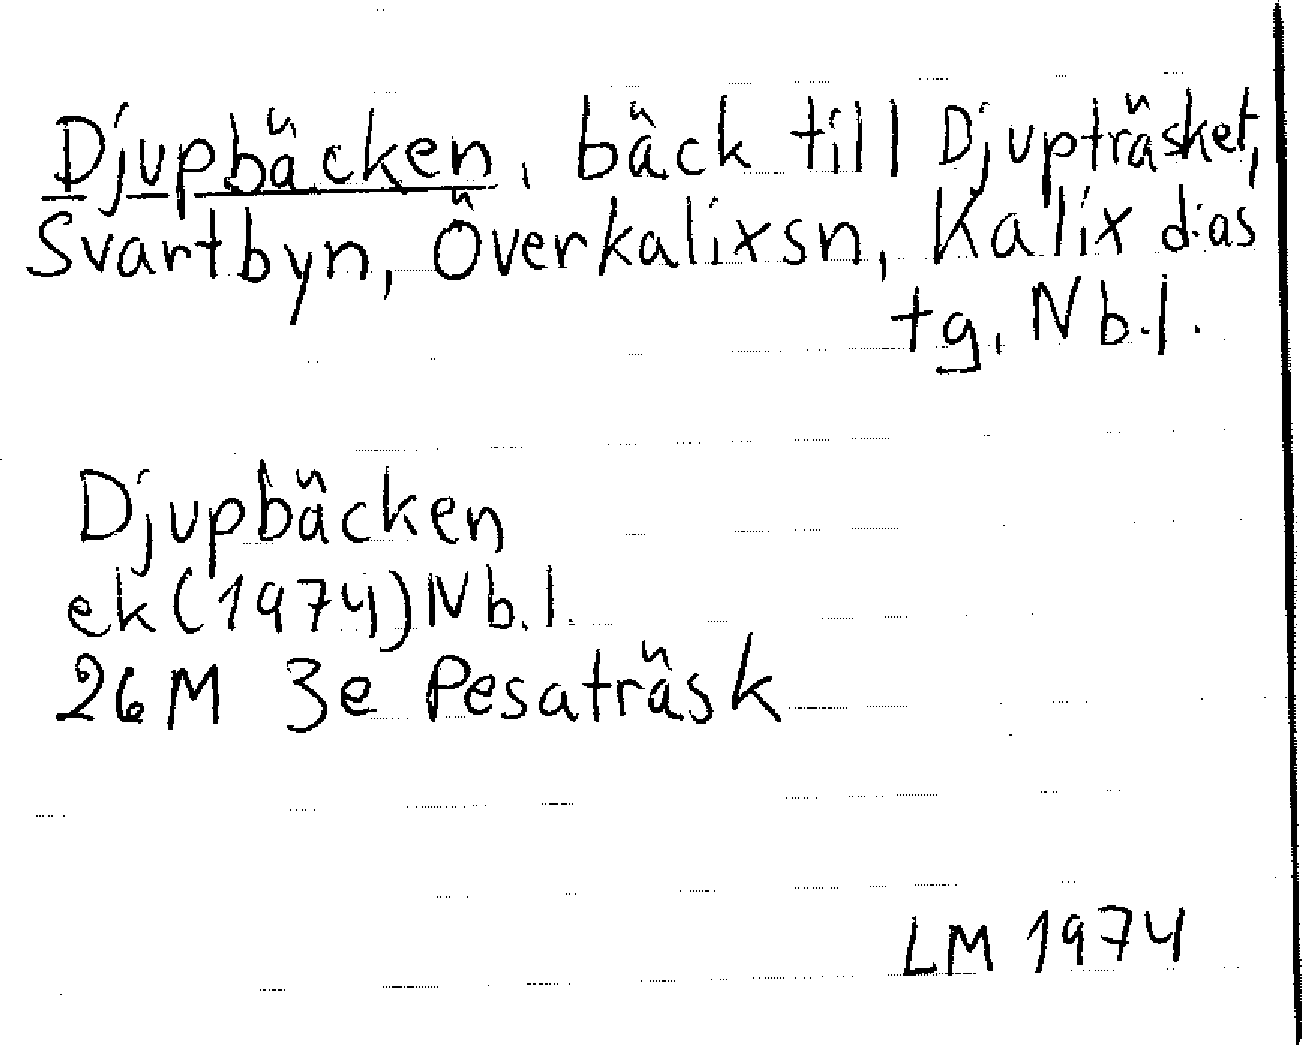 Djupbäcken, bäck till Djupträsket,
Svartbyn, Överkalixsn, Kalix d:as
tg, Nb.l.
Djupbäcken
ek (1974) Nb.l.
26M 3e Pesaträsk
LM 1974